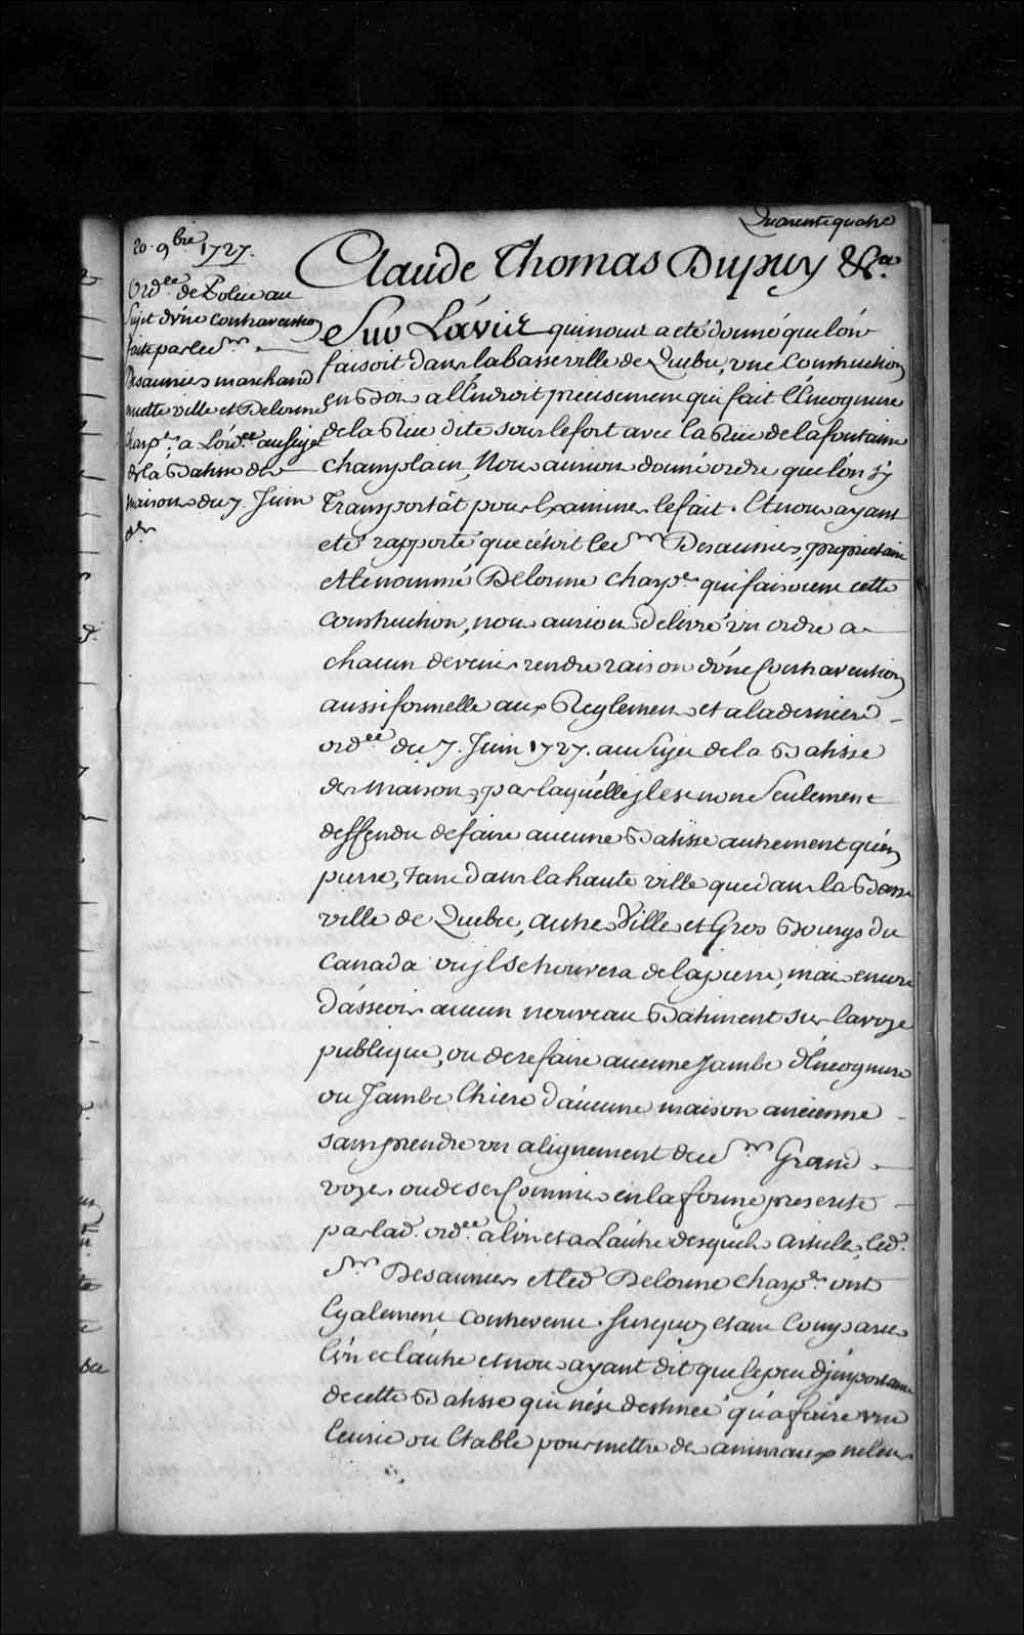 Quarente quatre
20. 9bre 1727.
Ordce de Police au
Sujet d'une contravention
faite par le Sr
Desauniers marchand
en cette ville et Delorme
charpr a l'ordce au sujet
de la Batisse des
maisons du 7. Juin
der
Claude Thomas Dupuy &ca
Sur L'avis qui nous a eté donné que lon
faisoit dans la basse ville de Quebec, une Construction
en Bois a l'Endroit precisement qui fait l'Encognure
de la Rüe dite sous le fort avec la Rüe de la fontaine
champlain, Nous aurions donné ordre que lon s'y
Transportât pour Examiner le fait. Et nous ayant
eté rapporté que c'etoit le Sr Desauniers, proprietaire
et le nommé Delorme charpr qui faisoient cette
Construction, nous aurions delivré un ordre a
chacun de venir rendre raison d'une Contravention
aussi formelle aux Reglemens et a la derniere
ordce du 7. Juin 1727. au Sujet de la Batisse
des Maisons, par laquelle jl est non Seulement
deffendu de faire aucune Batisse autrement qu'en
pierre, Tant dans la haute ville que dans la Basse
ville de Quebec, autres Villes et Gros Bourgs du
Canada ou jl se trouvera de la pierre, mais encore
d'asseoir aucun nouveau Batiment sur la voye
publique, ou de refaire aucune Jambe d'Encognure
ou Jambe Etriere d'aucune maison ancienne
sans prendre un alignement du Sr Grand
voyer ou de ses Commis en la forme prescrite
par lad. ordce a l'un et a L'autre desquels articles, led.
Sr Desauniers et led Delorme charpr ont
Egalement contrevenu. Surquoy etant Comparus
l'un et l'autre et nous ayant dit que le peu d'jmportance
de cette Batisse qui n'est destinée qu'a faire une
Ecurie ou Etable pour mettre des animaux ne leur